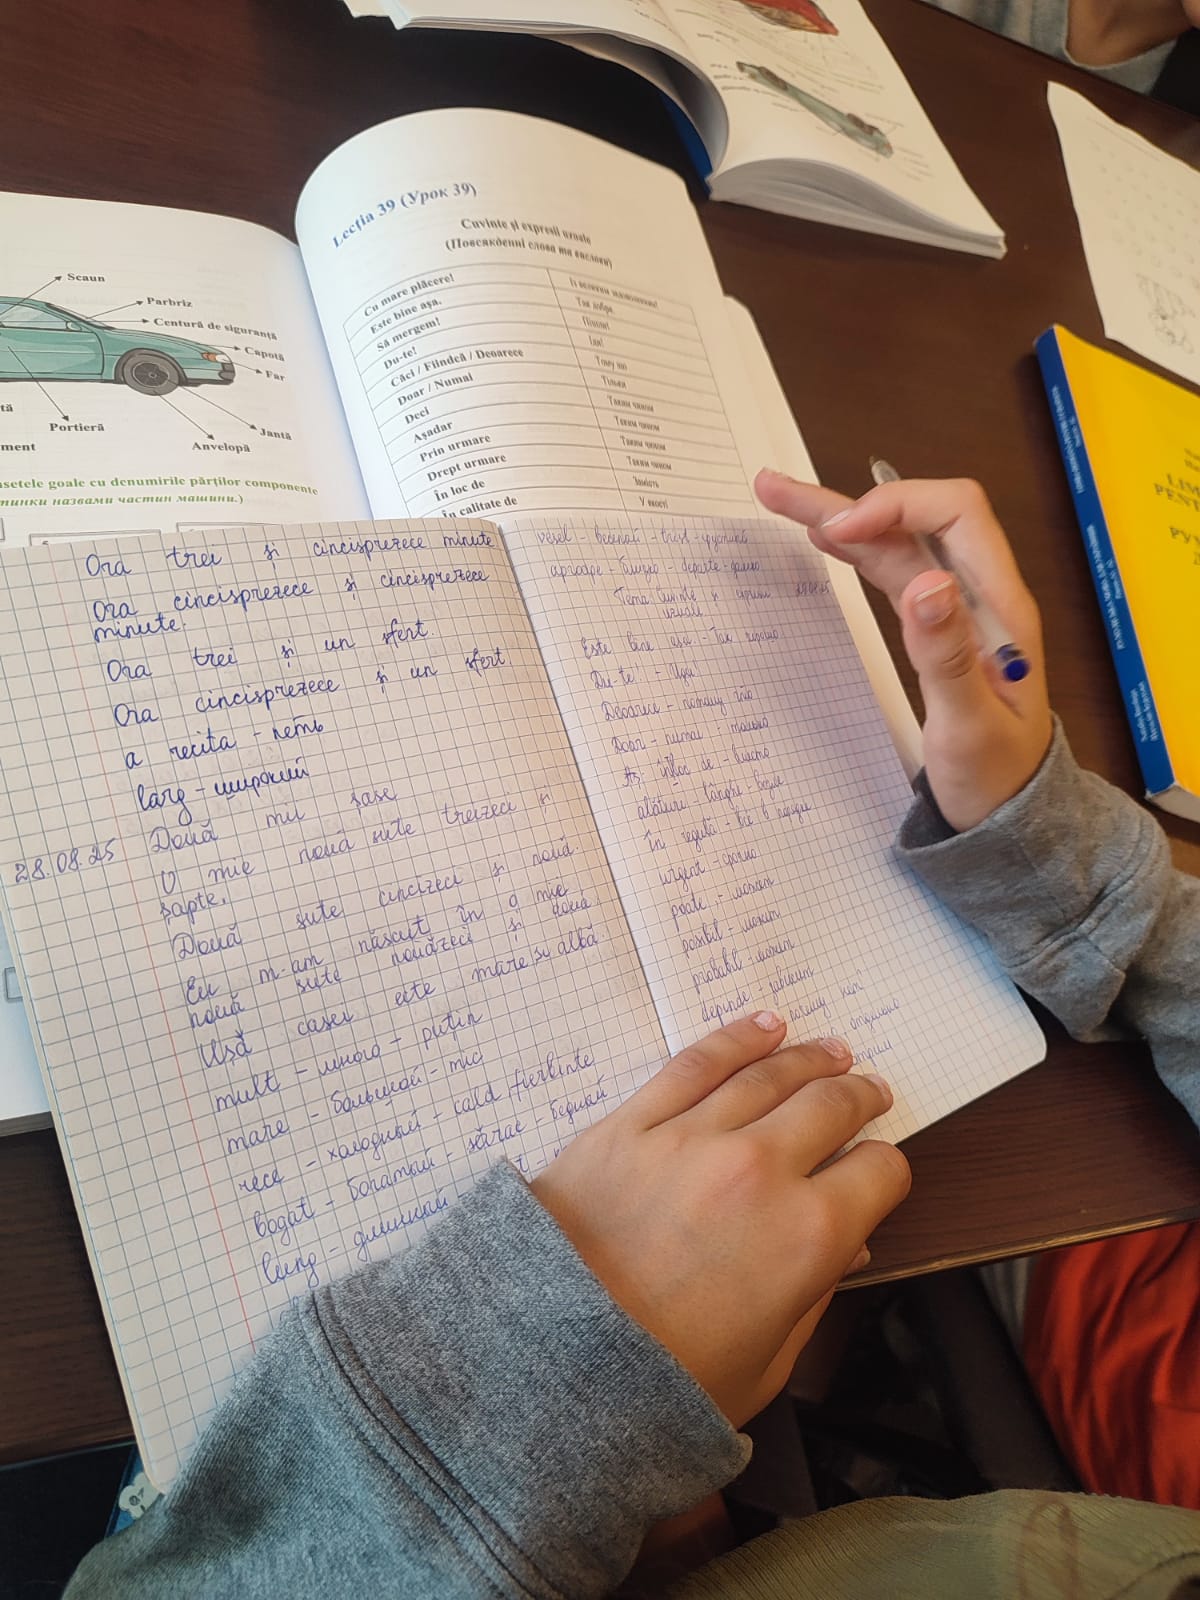 Scaun
Parbriz
Centură de siguranță
Capotă
Far
Jantă
Anvelopă
Portieră
setele goale cu denumirile părților componente
тинки назвами частин машини.)
Lecția 39 (Урок 39)
Cuvinte și expresii uzuale
(Повсякденні слова та вислови)
Cu mare plăcere! Із великим задоволенням!
Este bine așa. Так добре.
Să mergem! Пішли!
Du-te! Іди!
Căci / Fiindcă / Deoarece Тому що
Doar / Numai Тільки
Deci Таким чином
Așadar Таким чином
Prin urmare Таким чином
Drept urmare Таким чином
În loc de Замість
În calitate de У якості
Ora trei și cincisprezece minute
Ora cincisprezece și cincisprezece
minute.
Ora trei și un sfert.
Ora cincisprezece și un sfert
a recita - петь
larg - широкий
28.08.25 Două mii șase
O mie nouă sute treizeci și
șapte.
Două sute cincizeci și nouă.
Eu m-am născut în o mie
nouă sute nouăzeci și două.
Ușă casei este mare și albă.
mult - много - puțin
mare - большой - mic
rece - холодный - cald fierbinte
bogat - богатый - sărac - бедный
lung - длинный
vesel - веселый - trist - грустный
aproape - близко - departe - далеко
Tema Cuvinte și expresii
uzuale
Este bine așa - Так хорошо
Du-te! - Иди!
Deoarece - потому что
Doar - numai - только
în loc de - вместо
alături - lângă - возле
În regulă - всё в порядке
urgent - срочно
poate - может
posibil - может
probabil - может
depinde - зависит